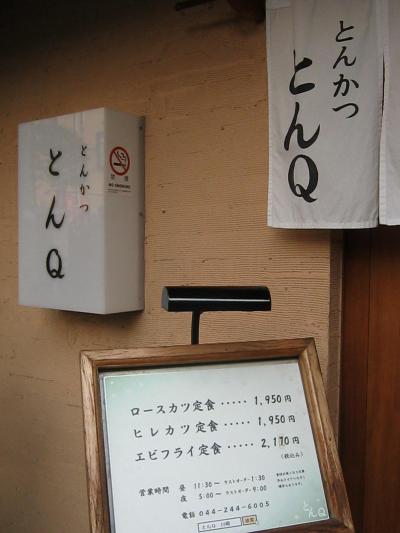 とんかつ
とんQ
禁煙
NO SMOKING
とんかつ
とんQ
ロースカツ定食‥‥‥1,950円
ヒレカツ定食‥‥‥1,950円
エビフライ定食‥‥‥2,170円
(税込み)
営業時間 昼 11:30～ ラストオーダー1:30
夜 5:00～ ラストオーダー9:00
電話 044-244-6005
とんQ 川崎 検索
とんQ